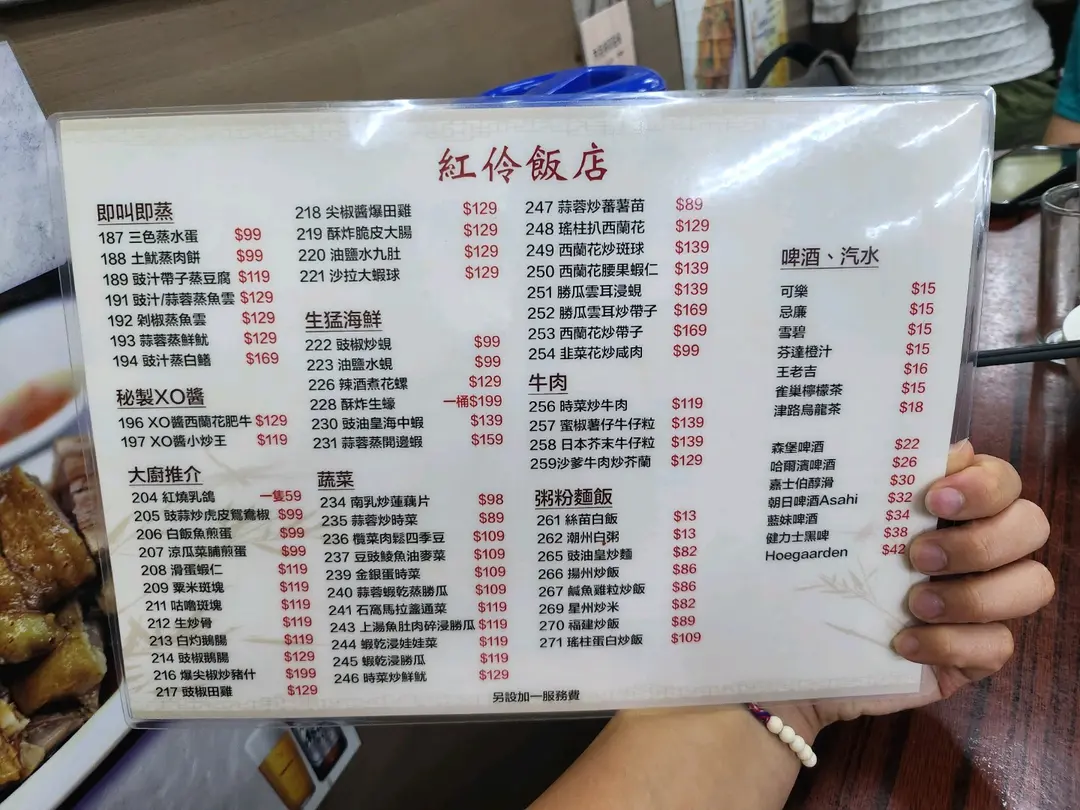 紅伶飯店
即叫即蒸
187 三色蒸水蛋 $99
188 土魷蒸肉餅 $99
189 豉汁帶子蒸豆腐 $119
191 豉汁/蒜蓉蒸魚雲 $129
192 剁椒蒸魚雲 $129
193 蒜蓉蒸鮮魷 $129
194 豉汁蒸白鱔 $169
秘製XO醬
196 XO醬西蘭花肥牛 $129
197 XO醬小炒王 $119
大廚推介
204 紅燒乳鴿 一隻59
205 豉蒜炒虎皮鴛鴦椒 $99
206 白飯魚煎蛋 $99
207 涼瓜菜脯煎蛋 $99
208 滑蛋蝦仁 $119
209 粟米斑塊 $119
211 咕嚕斑塊 $119
212 生炒骨 $119
213 白灼鵝腸 $119
214 豉椒鵝腸 $129
216 爆尖椒炒豬什 $199
217 豉椒田雞 $129
218 尖椒醬爆田雞 $129
219 酥炸脆皮大腸 $129
220 油鹽水九肚 $129
221 沙拉大蝦球 $129
生猛海鮮
222 豉椒炒蜆 $99
223 油鹽水蜆 $99
226 辣酒煮花螺 $129
228 酥炸生蠔 一桶$199
230 豉油皇海中蝦 $139
231 蒜蓉蒸開邊蝦 $159
蔬菜
234 南乳炒蓮藕片 $98
235 蒜蓉炒時菜 $89
236 欖菜肉鬆四季豆 $109
237 豆豉鯪魚油麥菜 $109
239 金銀蛋時菜 $109
240 蒜蓉蝦乾蒸勝瓜 $109
241 石窩馬拉盞通菜 $119
243 上湯魚肚肉碎浸勝瓜 $119
244 蝦乾浸娃娃菜 $119
245 蝦乾浸勝瓜 $119
246 時菜炒鮮魷 $129
247 蒜蓉炒蕃薯苗 $89
248 瑤柱扒西蘭花 $129
249 西蘭花炒斑球 $139
250 西蘭花腰果蝦仁 $139
251 勝瓜雲耳浸蜆 $139
252 勝瓜雲耳炒帶子 $169
253 西蘭花炒帶子 $169
254 韭菜花炒咸肉 $99
牛肉
256 時菜炒牛肉 $119
257 蜜椒薯仔牛仔粒 $139
258 日本芥末牛仔粒 $139
259沙爹牛肉炒芥蘭 $129
粥粉麵飯
261 絲苗白飯 $13
262 潮州白粥 $13
265 豉油皇炒麵 $82
266 揚州炒飯 $86
267 鹹魚雞粒炒飯 $86
269 星州炒米 $82
270 福建炒飯 $89
271 瑤柱蛋白炒飯 $109
啤酒、汽水
可樂 $15
忌廉 $15
雪碧 $15
芬達橙汁 $15
王老吉 $16
雀巢檸檬茶 $15
津路烏龍茶 $18
森堡啤酒 $22
哈爾濱啤酒 $26
嘉士伯醇滑 $30
朝日啤酒Asahi $32
藍妹啤酒 $34
健力士黑啤 $38
Hoegaarden $42
另設加一服務費